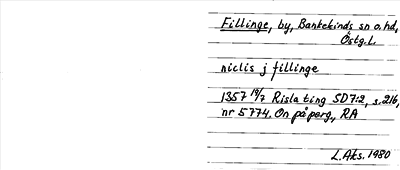 Fillinge, by, Bankekinds sn o. hd,
Östg.L.
niclis j fillinge
1357 19/7 Risla ting SD7:2, s.216,
nr 5774. On på perg, RA
L.Aks. 1980